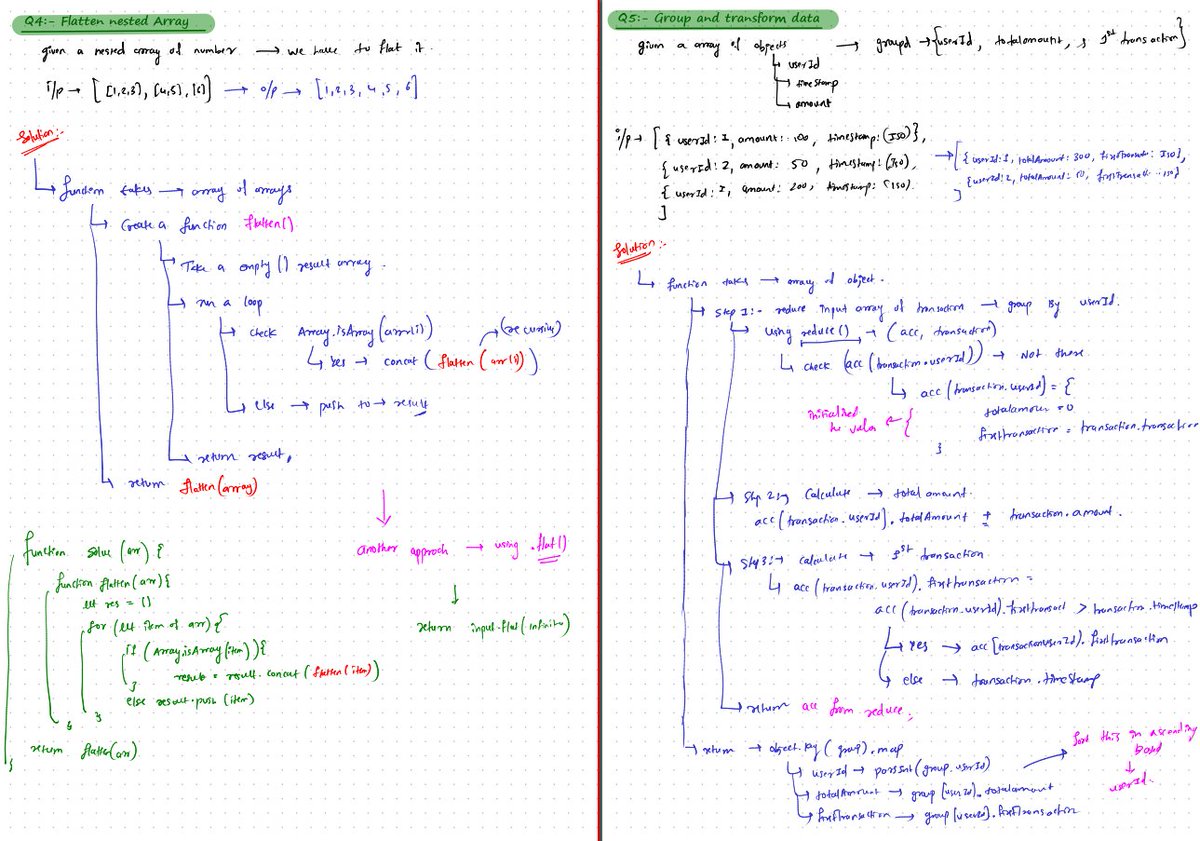 Q4:- Flatten nested Array
given a nested array of number → we have to flat it.
i/p → [[1,2,3], [4,5], [6]] → o/p → [1,2,3,4,5,6]
Solution:-
function takes → array of arrays
Create a function flatten()
Take a empty [] result array.
run a loop
check Array.isArray(arr[i])
(recursive)
Yes → concat(flatten(arr[i]))
Else → push to → result
return result,
return flatten(array)
another approch → using .flat()
return input.flat(infinite)
function solve (arr) {
function flatten(arr){
let res = []
for (let item of arr){
if (Array.isArray(item)){
result = result.concat(flatten(item))
}
else result.push(item)
}
}
return flatten(arr)
}
Q5:- Group and transform data
given a array of objects → groupd → {userId, totalamount, 1st transaction}
userId
timestamp
amount
i/p → [{userId: 1, amount: 100, timestamp: (ISO)},
{userId: 2, amount: 50, timestamp: (ISO),
{userId: 1, amount: 200, timestamp: (ISO).
]
→ [{userId: 1, totalAmount: 300, ISO},
{userId: 2, totalAmount: 50, ISO}
]
Solution:-
function takes → array of object.
Step 1:- reduce input array of transaction → group By userId.
using reduce() → (acc, transaction)
check (acc(transaction.userId)) → Not there
acc(transaction.userId) = {
initialized
the value
totalamoun = 0
firsttransaction = transaction.transaction
}
Step 2:→ Calculate → total amount.
acc(transaction.userId).totalAmount + transaction.amount.
Step 3:→ calculate → 1st transaction
acc(transaction.userId).firsttransaction =
acc(transaction.userId).firsttransact > transaction.timestamp
Yes → acc[transactionuserId].firsttransaction
else → transaction.timestamp
return acc from reduce;
return → object.key(group).map
userId → parsInt(group.userId)
totalAmount → group[userId].totalamount
firstTransaction → group[userId].firstTransaction
Sort this in ascending
based
userId.